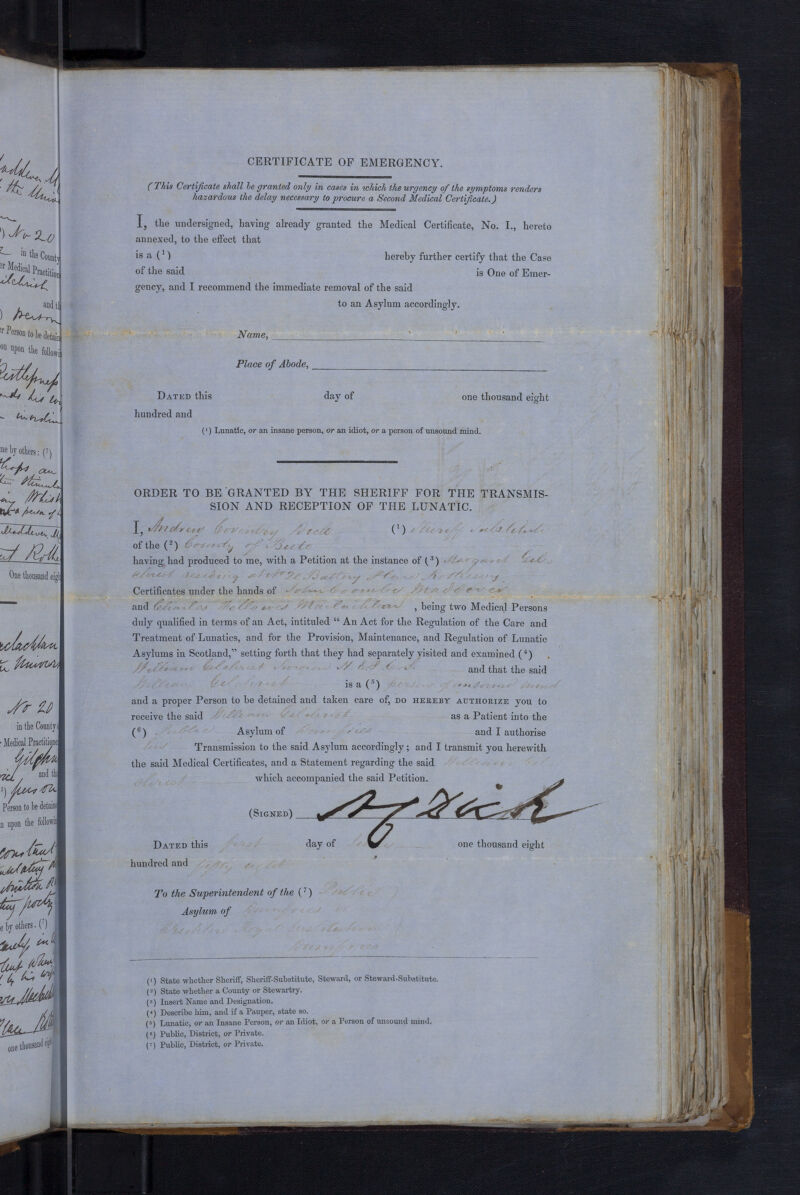 CERTIFICATE OF EMERGENCY.
(This Certificate shall be granted only in cases in which the urgency of the symptoms renders
hazardous the delay necessary to procure a Second Medical Certificate.)
I, the undersigned, having already granted the Medical Certificate, No. I., hereto
annexed, to the effect that
is a (1) hereby further certify that the Case
of the said is One of Emer-
gency, and I recommend the immediate removal of the said
to an Asylum accordingly.
Name,
Place of Abode,
DATED this day of one thousand eight
hundred and
(1) Lunatic, or an insane person, or an idiot, or a person of unsound mind.
ORDER TO BE GRANTED BY THE SHERIFF FOR THE TRANSMIS-
SION AND RECEPTION OF THE LUNATIC.
I, Andrew Coventry Dick (1) Sheriff Substitute
of the (2) County of Bute
having had produced to me, with a Petition at the instance of (3) Margaret Gil-
christ residing at No 20 Battery Place Rothesay
Certificates under the hands of John Coombe Maddever
and Charles Fellowes Maclachlan, being two Medical Persons
duly qualified in terms of an Act, intituled “An Act for the Regulation of the Care and
Treatment of Lunatics, and for the Provision, Maintenance, and Regulation of Lunatic
Asylums in Scotland,” setting forth that they had separately visited and examined (4)
William Gilchrist and that the said
William Gilchrist is a (5) person of unsound mind
and a proper Person to be detained and taken care of, DO HEREBY AUTHORIZE you to
receive the said William Gilchrist as a Patient into the
(6) Public Asylum of Dumfries and I authorise
his Transmission to the said Asylum accordingly; and I transmit you herewith
the said Medical Certificates, and a Statement regarding the said William Gil-
christ which accompanied the said Petition.
(SIGNED) A C Dick
DATED this first day of one thousand eight
hundred and fifty eight
To the Superintendent of the (7) Public
Asylum of Dumfries or
Crichton Royal Institution
Dumfries
(1) State whether Sheriff, Sheriff-Substitute, Steward, or Steward-Substitute.
(2) State whether a County or Stewartry.
(3) Insert Name and Designation.
(4) Describe him, and if a Pauper, state so.
(5) Lunatic, or an Insane Person, or an Idiot, or a Person of unsound mind.
(6) Public, District, or Private.
(7) Public, District, or Private.
No 20
in the County
Medical Practitione
and th
Person to be detaine
upon the followi
me by others: (7)
One thousand eigh
No 20
in the County
Medical Practitione
and th
Person to be detaine
upon the followi
by others. (7)
one thousand eigh